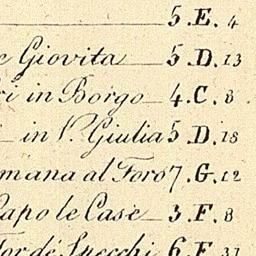 5.E. 4
Giovita 5.D. 13
in Borgo 4.C. 8
in V. Giulia 5.D. 18
mana al Foro 7.G. 12
Capo le Case 3.F. 8
Tor dé Specchi 6.F. 31